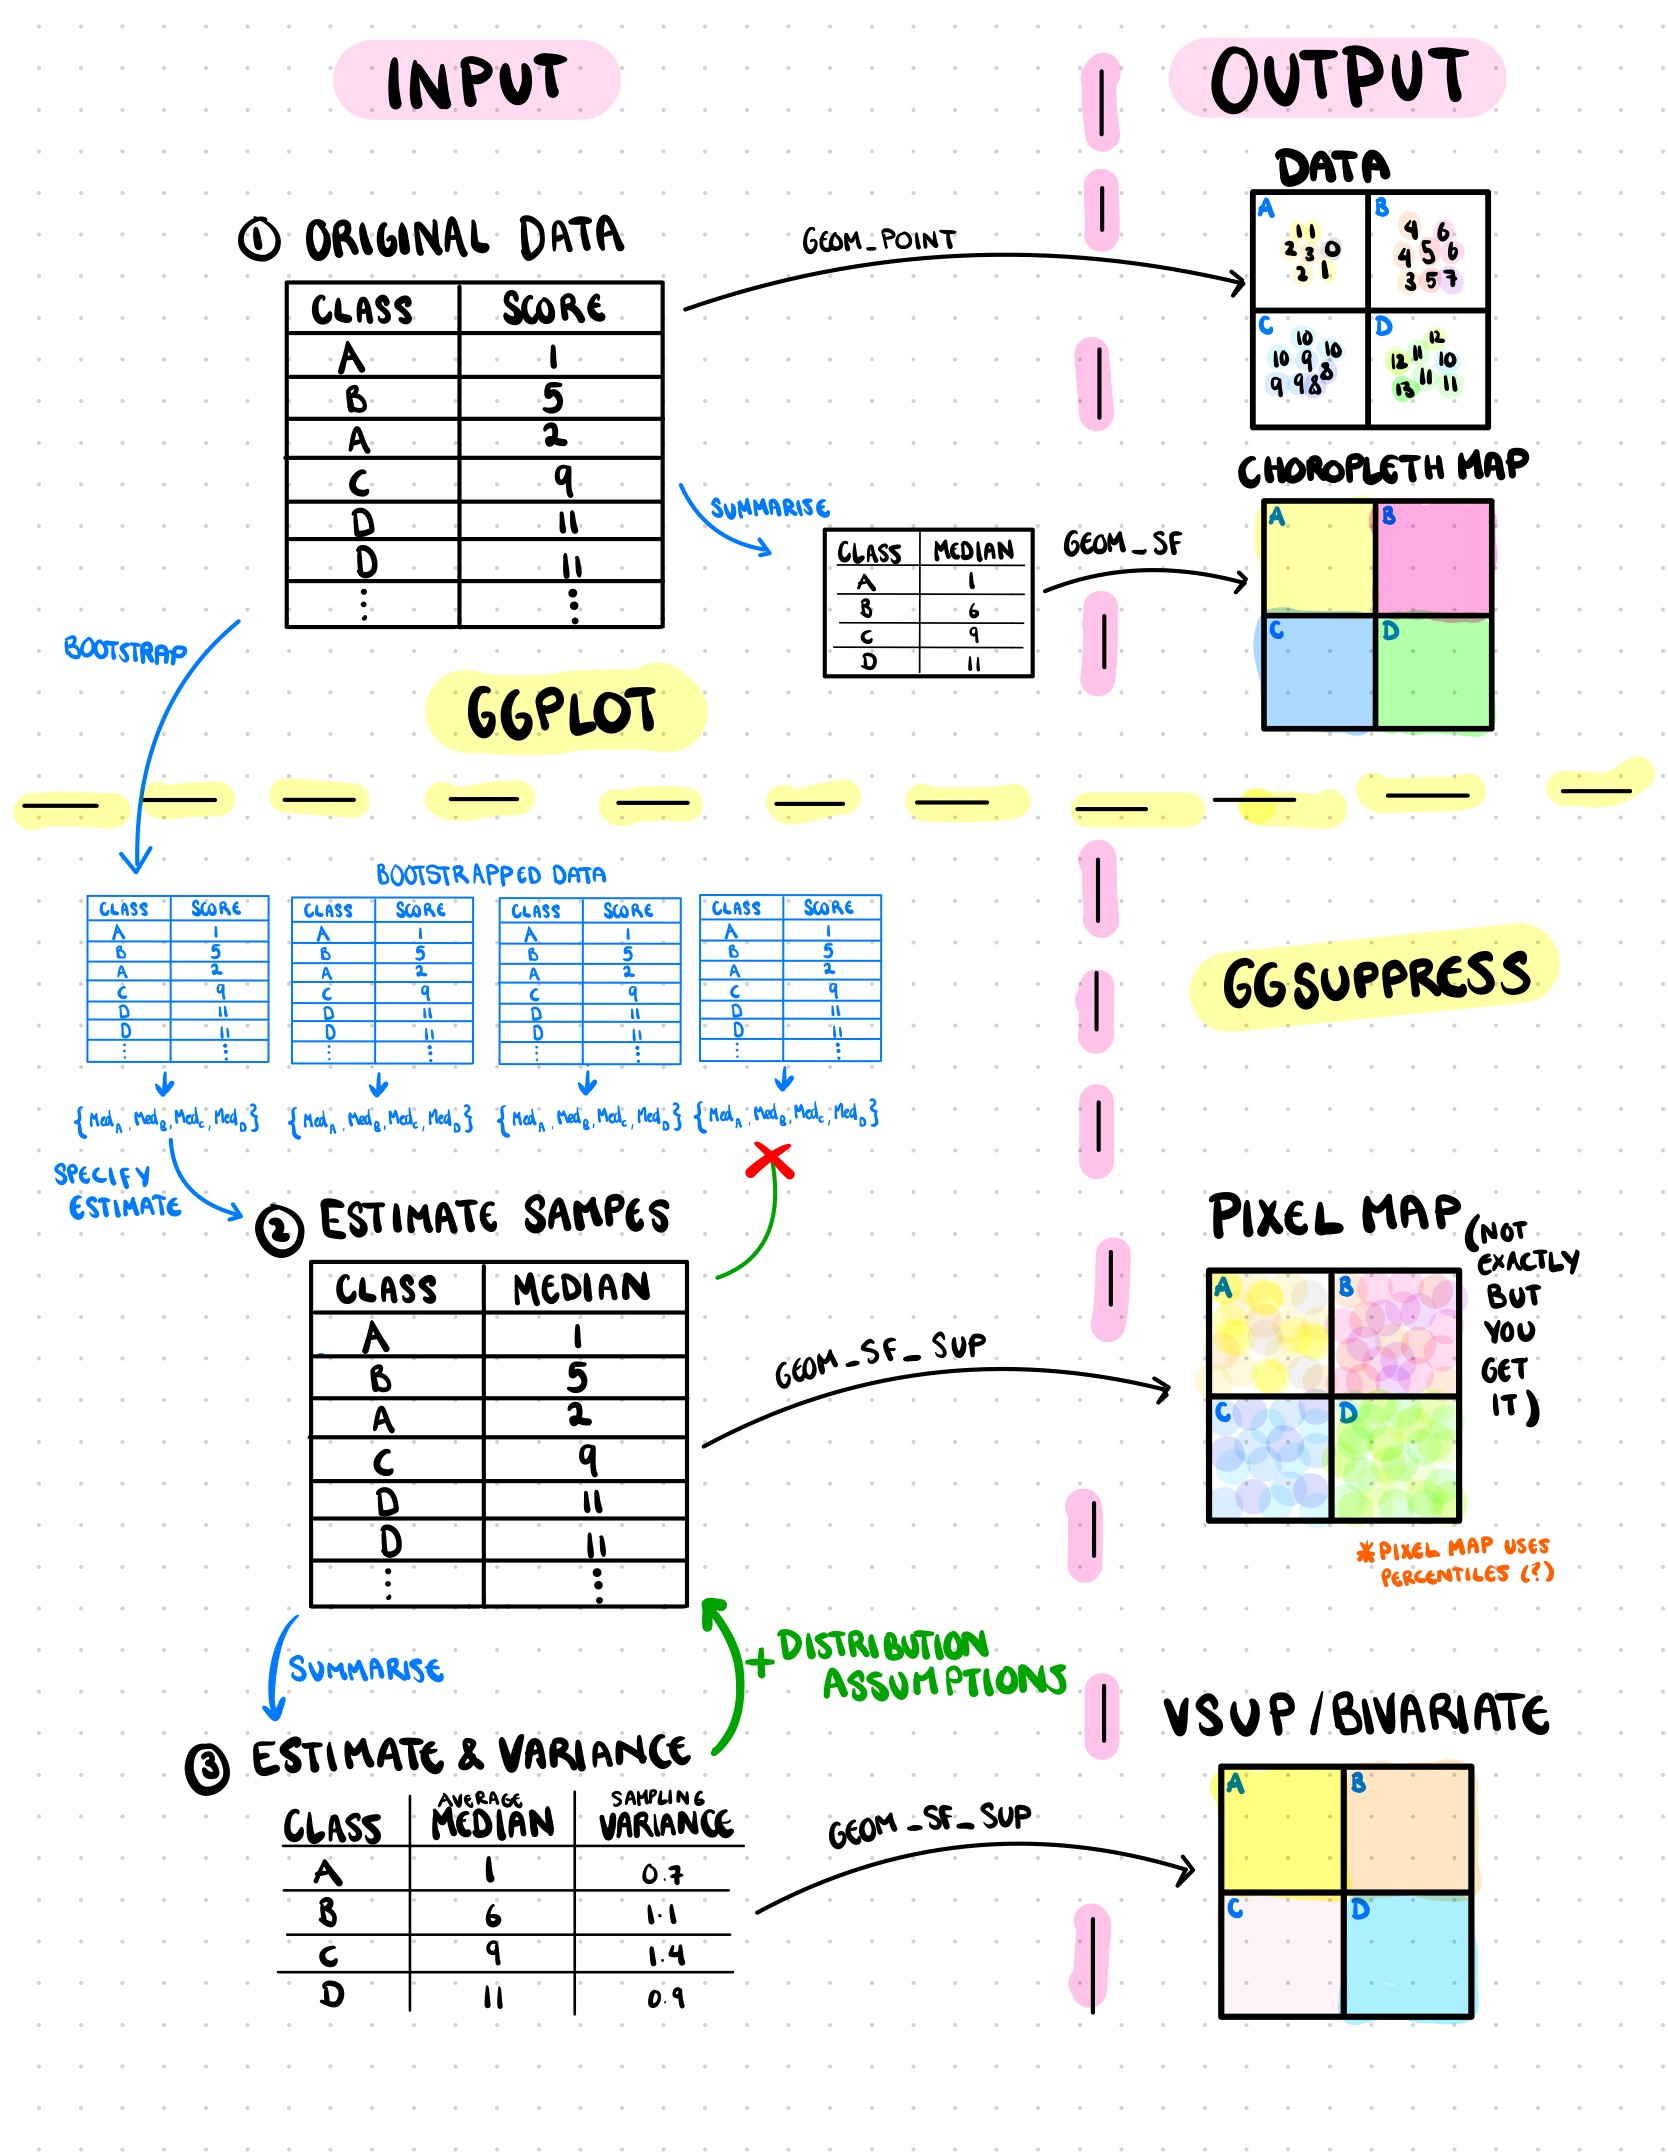 INPUT
OUTPUT
① ORIGINAL DATA
CLASS SCORE
A 1
B 5
A 2
C 9
D 11
D 11
⋮ ⋮
GEOM_POINT
DATA
A
1 1
2 3 0
2 1
B
4 6
4 5 6
3 5 7
C
10
10 9 10
9 9 8 8
D
12
12 11 10
13 11 11
SUMMARISE
CLASS MEDIAN
A 1
B 6
C 9
D 11
GEOM_SF
CHOROPLETH MAP
A B
C D
BOOTSTRAP
GGPLOT
GGSUPPRESS
BOOTSTRAPPED DATA
CLASS SCORE
A 1
B 5
A 2
C 9
D 11
D 11
⋮ ⋮
{Med_A, Med_B, Med_C, Med_D}
CLASS SCORE
A 1
B 5
A 2
C 9
D 11
D 11
⋮ ⋮
{Med_A, Med_B, Med_C, Med_D}
CLASS SCORE
A 1
B 5
A 2
C 9
D 11
D 11
⋮ ⋮
{Med_A, Med_B, Med_C, Med_D}
CLASS SCORE
A 1
B 5
A 2
C 9
D 11
D 11
⋮ ⋮
{Med_A, Med_B, Med_C, Med_D}
SPECIFY
ESTIMATE
② ESTIMATE SAMPES
CLASS MEDIAN
A 1
B 5
A 2
C 9
D 11
D 11
⋮ ⋮
GEOM_SF_SUP
PIXEL MAP
(NOT
EXACTLY
BUT
YOU
GET
IT)
A B
C D
*PIXEL MAP USES
PERCENTILES (?)
SUMMARISE
+ DISTRIBUTION
ASSUMPTIONS
③ ESTIMATE & VARIANCE
CLASS AVERAGE MEDIAN SAMPLING VARIANCE
A 1 0.7
B 6 1.1
C 9 1.4
D 11 0.9
GEOM_SF_SUP
VSUP/BIVARIATE
A B
C D